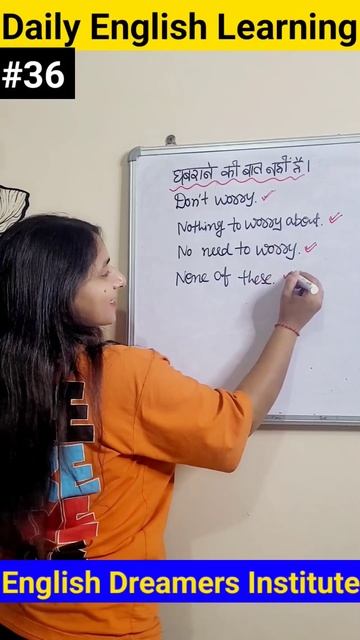 Daily English Learning
#36
घबराने की बात नहीं है।
Don't worry.
Nothing to worry about.
No need to worry.
None of these.
English Dreamers Institute